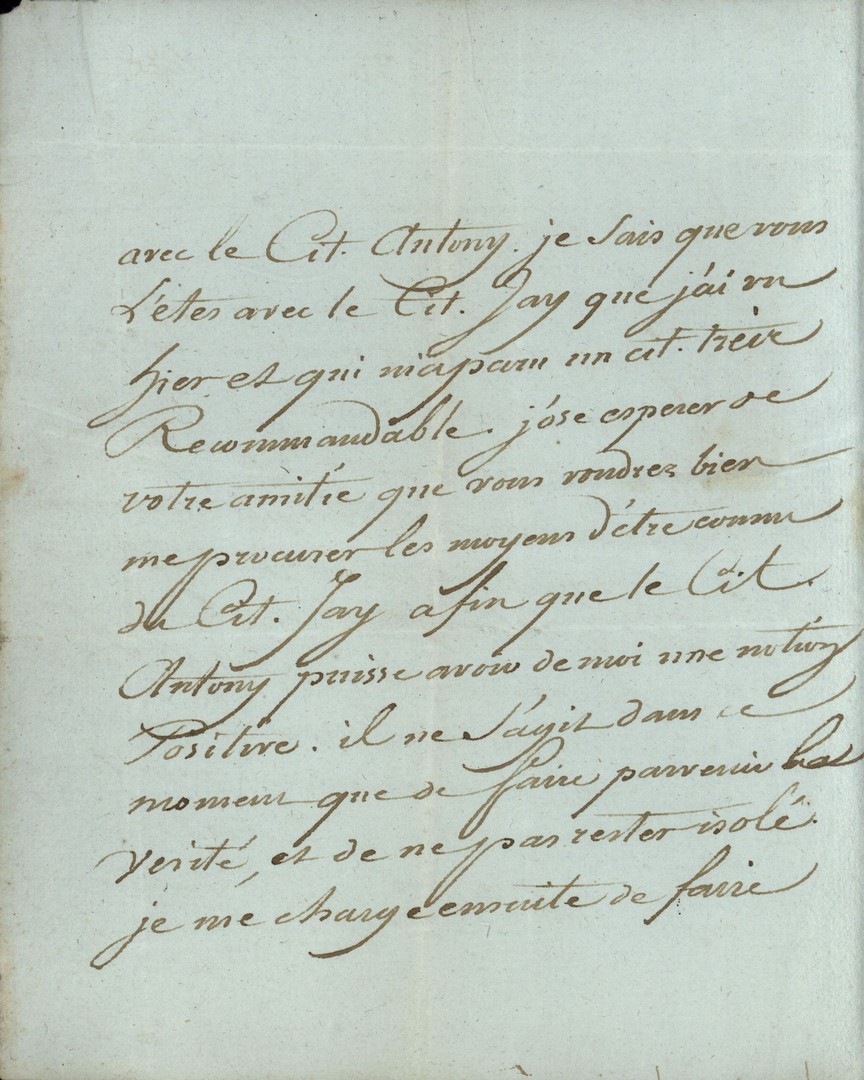 avec le Cit. Antony. je sais que vous
L'êtes avec le Cit. Jay que j'ai vu
hier et qui m'a paru un cit. très
Recommandable. j'ose esperer de
votre amitié que vous voudrez bien
me procurer les moyens d'être connu
du Cit. Jay afin que le Cit.
Antony puisse avoir de moi une notion
Positive. il ne s'agit dans ce
moment que de faire parvenir la
verité, et de ne pas rester isolé.
je me charge ensuite de faire